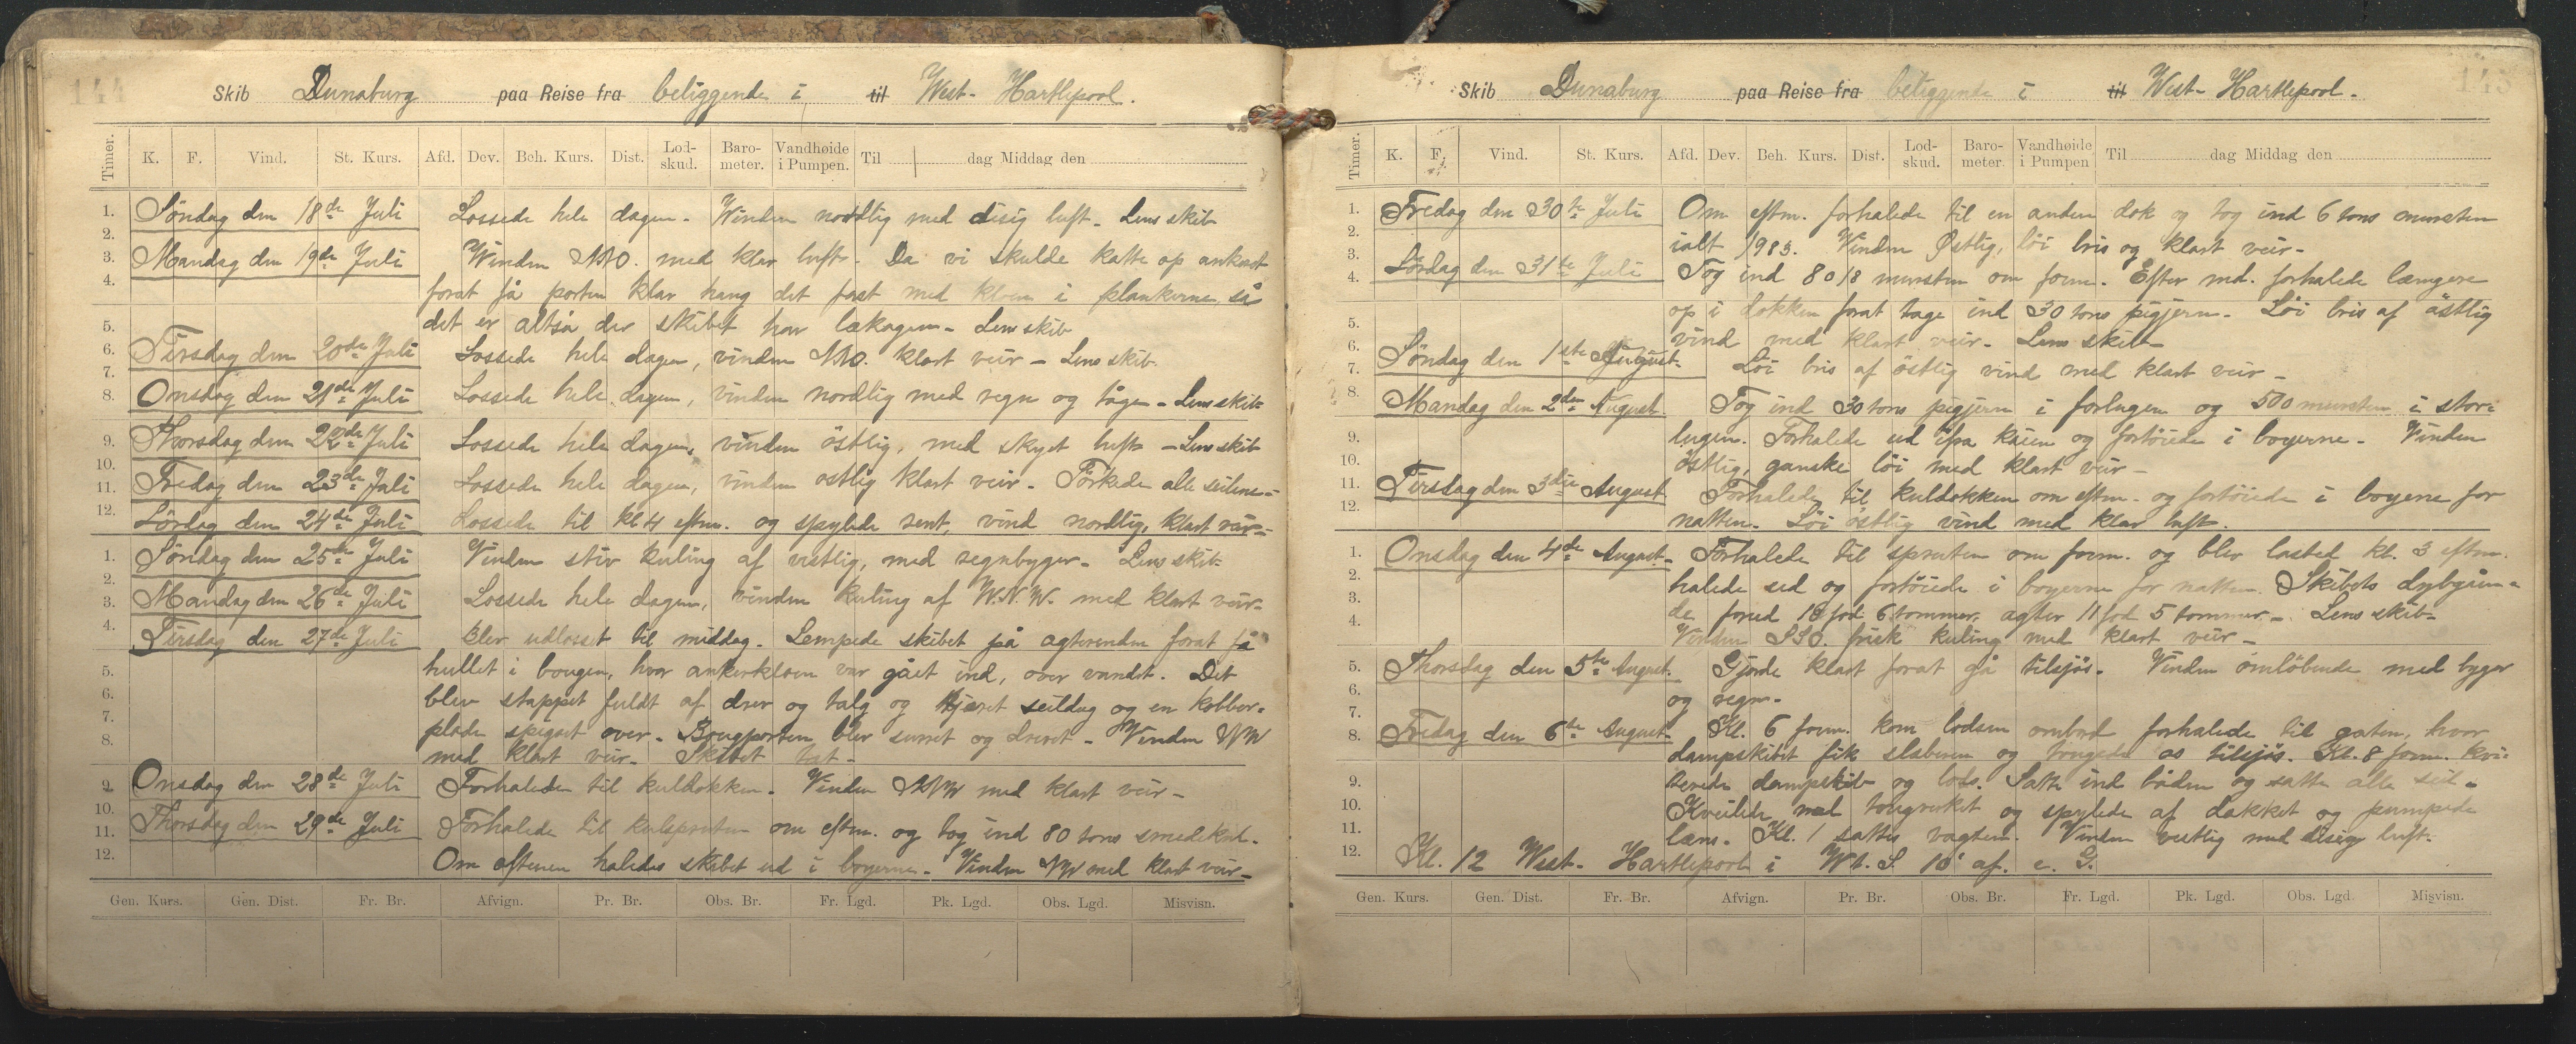 144
Skib Dunaburg paa Reise fra beliggende i til West-Hartlepool.
Timer. K. F. Vind. St. Kurs. Afd. Dev. Beh. Kurs. Dist. Lod-skud. Baro-meter. Vandhøide i Pumpen. Til dag Middag den
Søndag den 18de Juli Lossede hele dagen. Vinden nordlig med disig luft. Lens skib
Mandag den 19de Juli Vinden NNO. med klar luft. Da vi skulde katte op ankeret
forat få porten klar hang det fast med kloen i plankerne så
det er altså der skibet har lækagen. Lens skib
Tirsdag den 20de Juli Lossede hele dagen, vinden NNO. klart veir – Lens skib.
Onsdag den 21de Juli Lossede hele dagen, vinden nordlig med regn og tåge – Lens skib
Thorsdag den 22de Juli Lossede hele dagen, vinden östlig, med skyet luft – Lens skib
Fredag den 23de Juli Lossede hele dagen, vinden ostlig klart veir. Törkede alle seilene
Lördag den 24de Juli Lossede til kl 4 eftm. og spylede rent, vind nordlig, klart veir
Søndag den 25de Juli Vinden stiv kuling af vestlig, med regnbyger. Lens skib
Mandag den 26de Juli Lossede hele dagen, vinden kuling af W.N.W. med klart veir
Tirsdag den 27de Juli Blev udlosset til middag. Lempede skibet på agterenden forat få
hullet i bougen, hvor ankerkloen var gået ind, over vandet. Det
blev stappet fuldt af drev og talg og tjæret seildug og en kobber-
plade spigret over. Bougporten blev surret og drevet – Vinden NW
med klart veir. Skibet tæt –
Onsdag den 28de Juli Forhalede til kuldokken. Vinden NNW med klart veir –
Thorsdag den 29de Juli Forhalede til kulspruten om eftm. og tog ind 80 tons smedekul.
Om aftenen haledes skibet ud i boyerne. Vinden NW med klart veir –
1.
2.
3.
4.
5.
6.
7.
8.
9.
10.
11.
12.
1.
2.
3.
4.
5.
6.
7.
8.
9.
10.
11.
12.
Gen. Kurs. Gen. Dist. Fr. Br. Afvign. Pr. Br. Obs. Br. Fr. Lgd. Pk. Lgd. Obs. Lgd. Misvisn.
145
Skib Dunaburg paa Reise fra beliggende i til West-Hartlepool.
Timer. K. F. Vind. St. Kurs. Afd. Dev. Beh. Kurs. Dist. Lod-skud. Baro-meter. Vandhøide i Pumpen Til dag Middag den
Fredag den 30te Juli Om eftm. forhalede til en anden dok og tog ind 6 tons mursten
ialt 1983. Vinden Østlig, löi bris og klart veir –
Lørdag den 31te Juli Tog ind 8018 mursten om form. Efter md. forhalede længere
op i dokken forat tage ind 30 tons pigjern. Löi bris af östlig
vind med klart veir. Lens skib
Søndag den 1ste August Löi bris af östlig vind med klart veir –
Mandag den 2den August Tog ind 30 tons pigjern i forlugen og 500 mursten i stor-
lugen. Forhalede ud ifra kaien og fortöiede i boyerne. Vinden
östlig, ganske löi med klart veir –
Tirsdag den 3die August Forhalede til kuldokken om eftm. og fortöiede i boyerne for
natten. Löi östlig vind med klar luft.
Onsdag den 4de August. Forhalede til spruten om form. og blev lasted kl. 3 eftm.
halede ud og fortöiede i boyerne for natten. Skibets dybgåen-
de forud 10 fod 6 tommer, agter 11 fod 5 tommer –. Lens skib
Vinden SSO. frisk kuling med klart veir –
Thorsdag den 5te August. Gjorde klart forat gå tilsjös. Vinden omlöbende med byger
og regn.
Fredag den 6te August. Kl. 6 form. kom lodsen ombord forhalede til gaten, hvor
dampskibet fik slæberen og bougserte os tilsjös. Kl. 8 form. kvi-
terede dampskib og lods. Satte ind båden og satte alle seil.
Kveilede ned tougverket og spylede af dækket og pumpede
læns. Kl. 1 sattes vagten. Vinden vestlig med disig luft.
Kl. 12 West-Hartlepool i Wt. S. 10' af. e. G.
1.
2.
3.
4.
5.
6.
7.
8.
9.
10.
11.
12.
1.
2.
3.
4.
5.
6.
7.
8.
9.
10.
11.
12.
Gen. Kurs. Gen. Dist. Fr. Br. Afvign. Pr. Br. Obs. Br. Fr. Lgd. Pk. Lgd. Obs. Lgd. Misvisn.